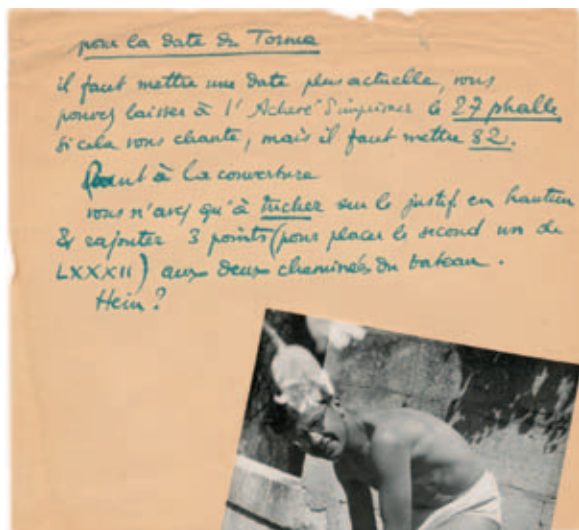 pour la date du Torma
il faut mettre une date plus actuelle, vous
pouvez laisser à l'Achevé d'imprimer le 27 phalle
si cela vous chante, mais il faut mettre 82.
Quant à la couverture
vous n'avez qu'à tricher sur le justif en hauteur
& rajouter 3 points (pour placer le second un de
LXXXII) aux deux cheminées du bateau.
Hein ?